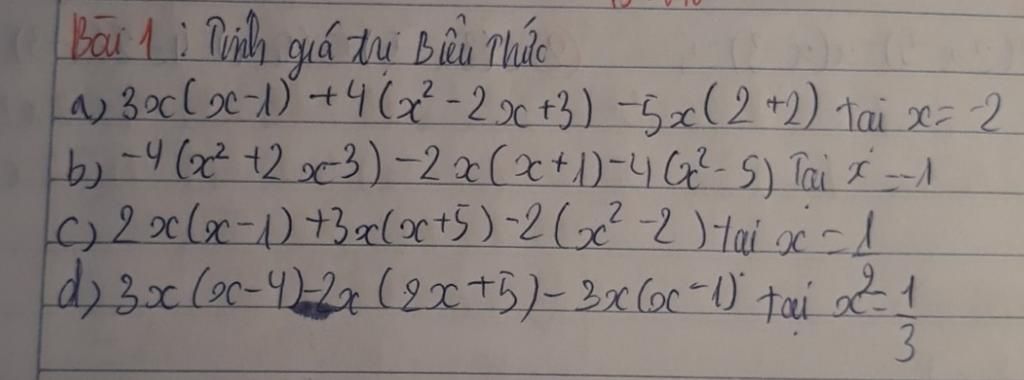 Bài 1 : Tính giá trị Biểu Thức
a) 3x(x-1) + 4(x² - 2x + 3) - 5x(2+2) tại x = -2
b) -4(x² + 2x - 3) - 2x(x+1) - 4(x² - 5) Tại x = -1
c) 2x(x-1) + 3x(x+5) - 2(x² - 2) tại x = 1
d) 3x(x-4) - 2x(2x+5) - 3x(x-1) tại x² = 1/3